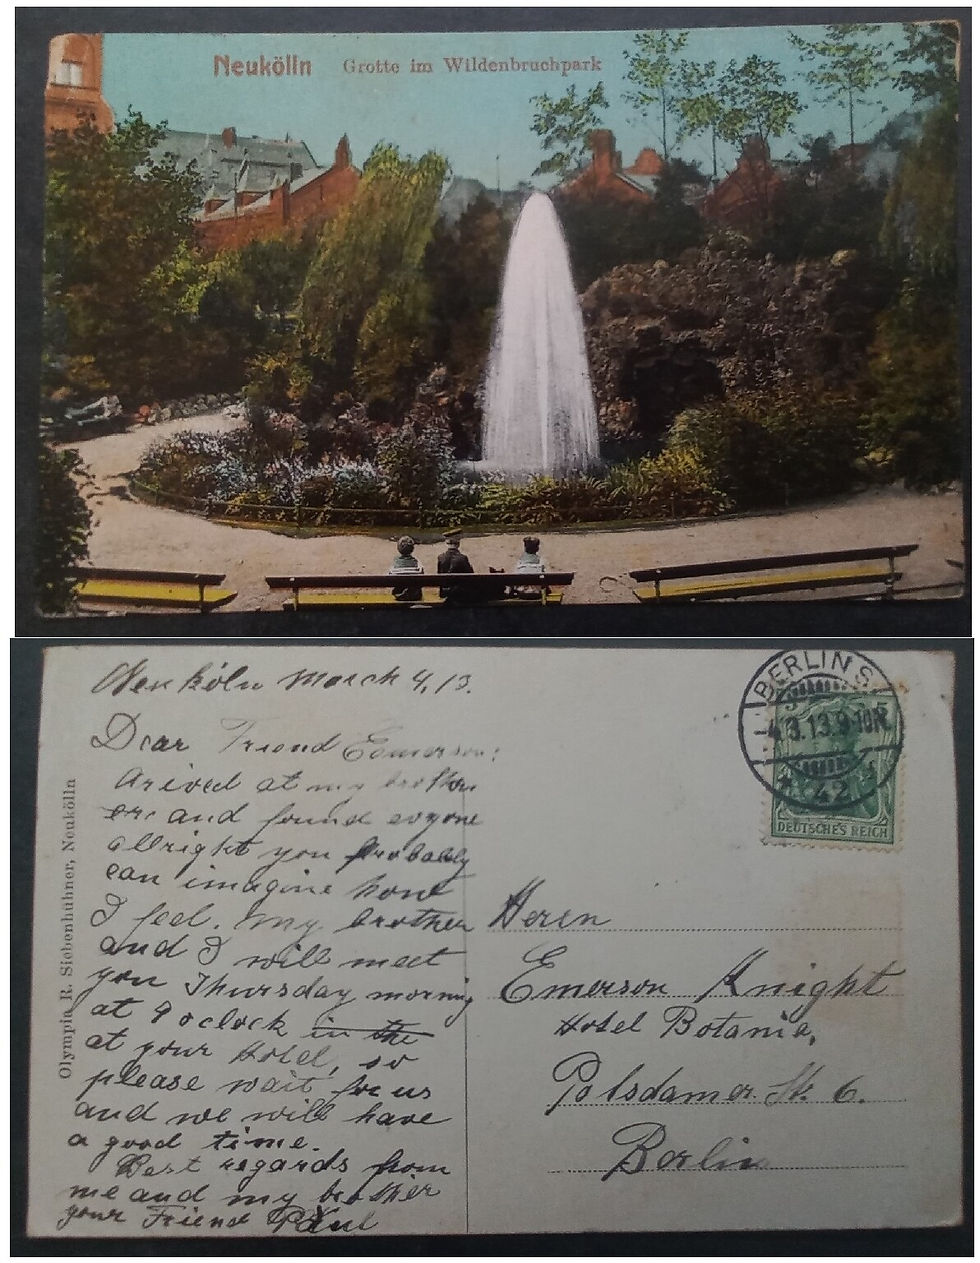 Neukölln Grotte im Wildenbruchpark
Neu köln March 4, 13.
Dear Friend Eemerson:
Arived at my brothe
ers and found evyone
allright you probably
can imagine how
I feel. my brother
and I will meet
you Thursday morning
at 9 oclock in the
at your Hotel, so
please wait for us
and we will have
a good time.
Best regards from
me and my brother
your Friend Paul
Olympia R. Siebenhühner, Neukölln
BERLIN S.
-4.3.13.9-10N.
* 42
DEUTSCHES REICH
Heren
Emerson Knight
Hotel Botania,
Potsdamer St. 6.
Berlin